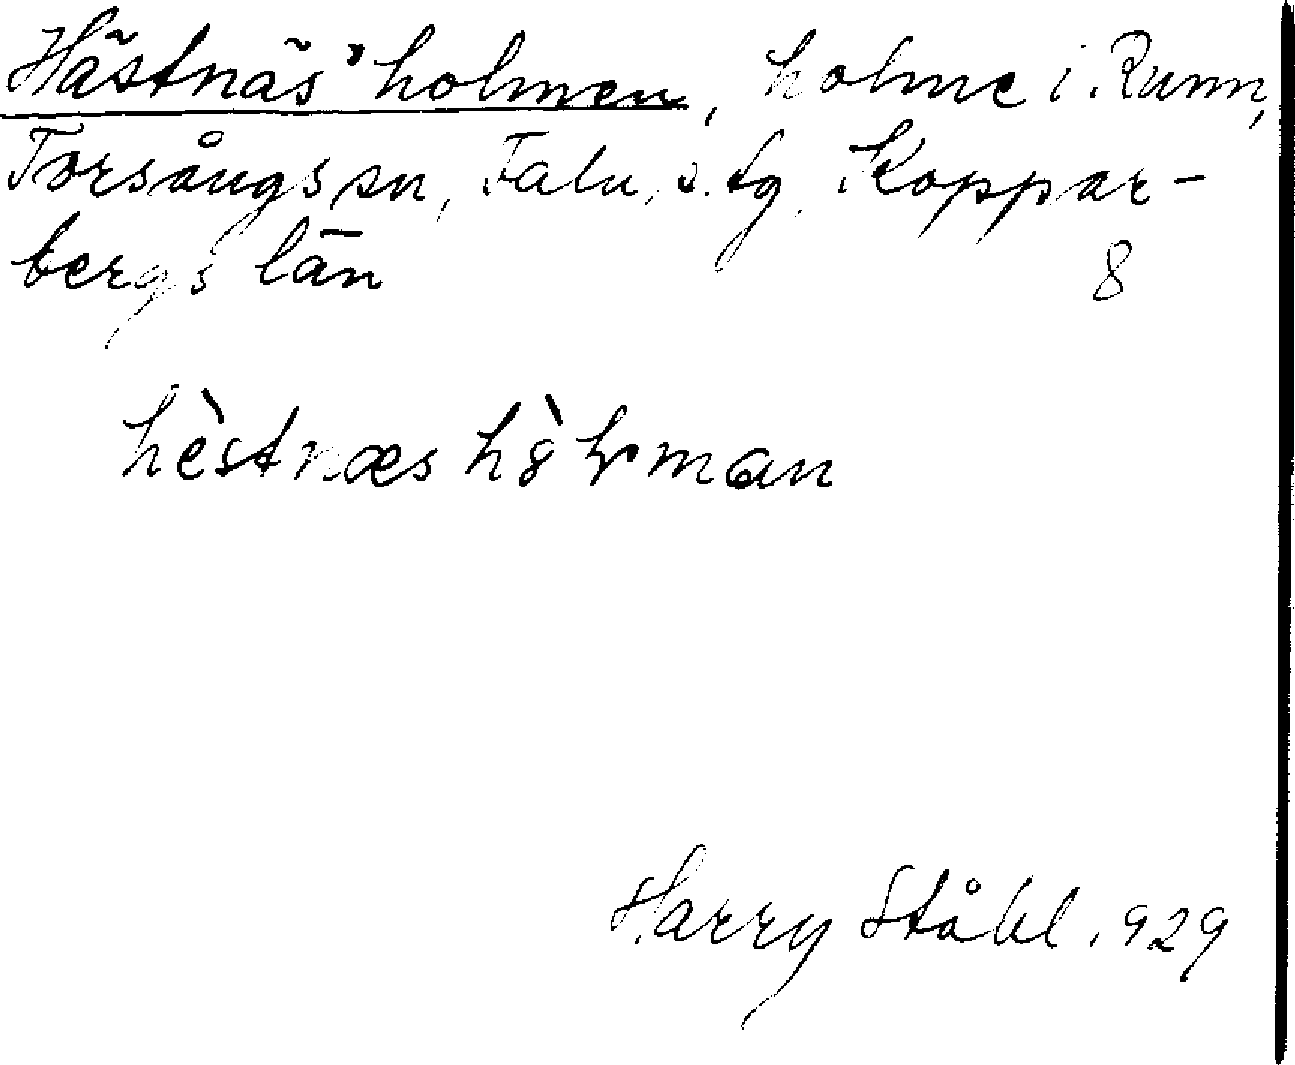 Hästnäs'holmen, holme i Runn,
Torsångs sn, Falu s. tg, Koppar-
bergs län
8
hèstnæs hòḷman
Harry Ståhl. 929